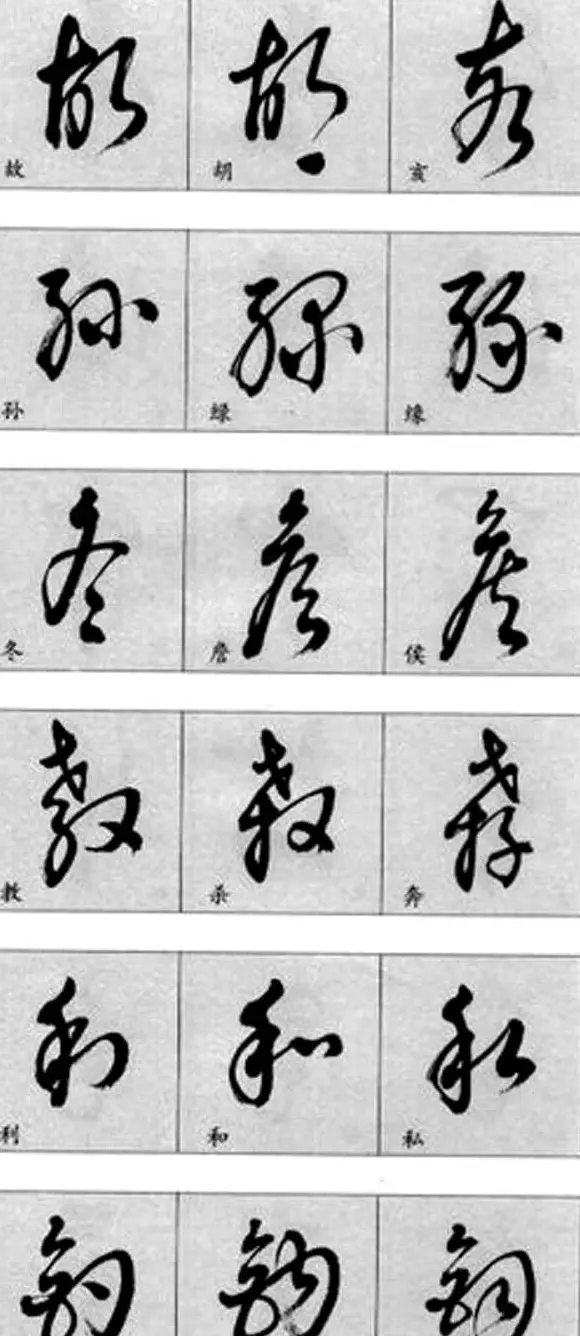 故 胡 亥
孙 绿 缘
冬 詹 侯
教 杀 弃
利 和 私